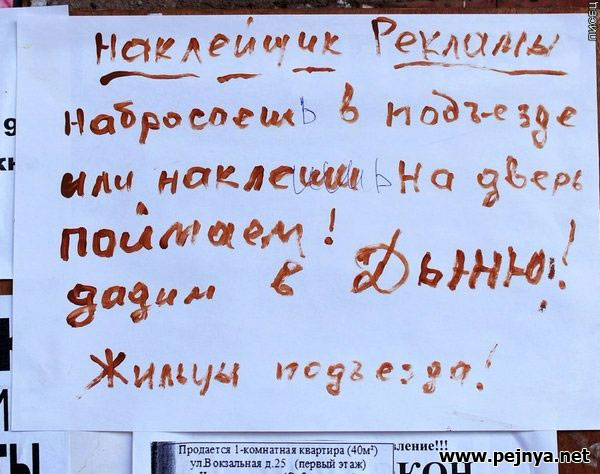 Наклейщик Рекламы
Набросаешь в подъезде
или наклеишь на дверь
поймаем!
дадим в Дыню!
Жильцы подъезда!
Продается 1-комнатная квартира (40м²)
ул.Вокзальная д.25 (первый этаж)
ление!!!
www.pejnya.net
ПИСЕЦ